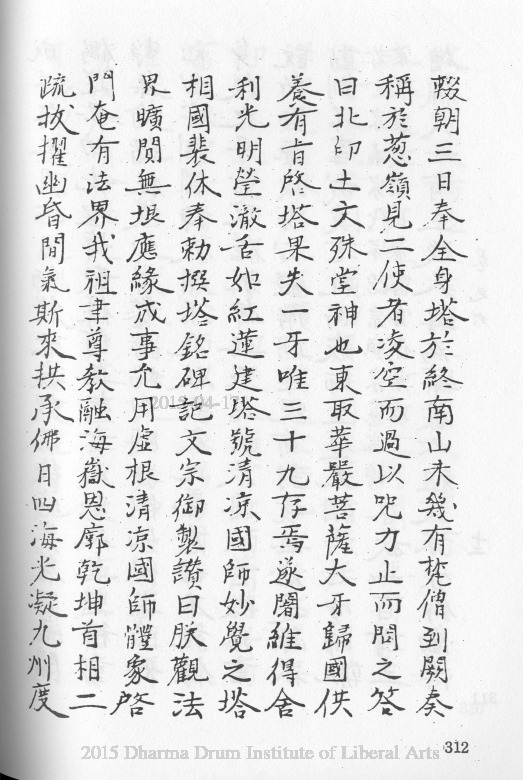 輟朝三日奉全身塔於終南山未幾有梵僧到闕奏
稱於葱嶺見二使者凌空而過以咒力止而問之答
曰北印土文殊堂神也東取華嚴菩薩大牙歸國供
養有旨啓塔果失一牙唯三十九存焉遂闍維得舍
利光明瑩澈舌如紅蓮建塔號清凉國師妙覺之塔
相國裴休奉勅撰塔銘碑記文宗御製讚曰朕觀法
界曠閴無垠應緣成事允用虛根清凉國師體象啓
門奄有法界我祖聿尊教融海嶽恩廓乾坤首相二
疏拔擢幽昏間氣斯來拱承佛日四海光凝九州度
312
2015 Dharma Drum Institute of Liberal Arts